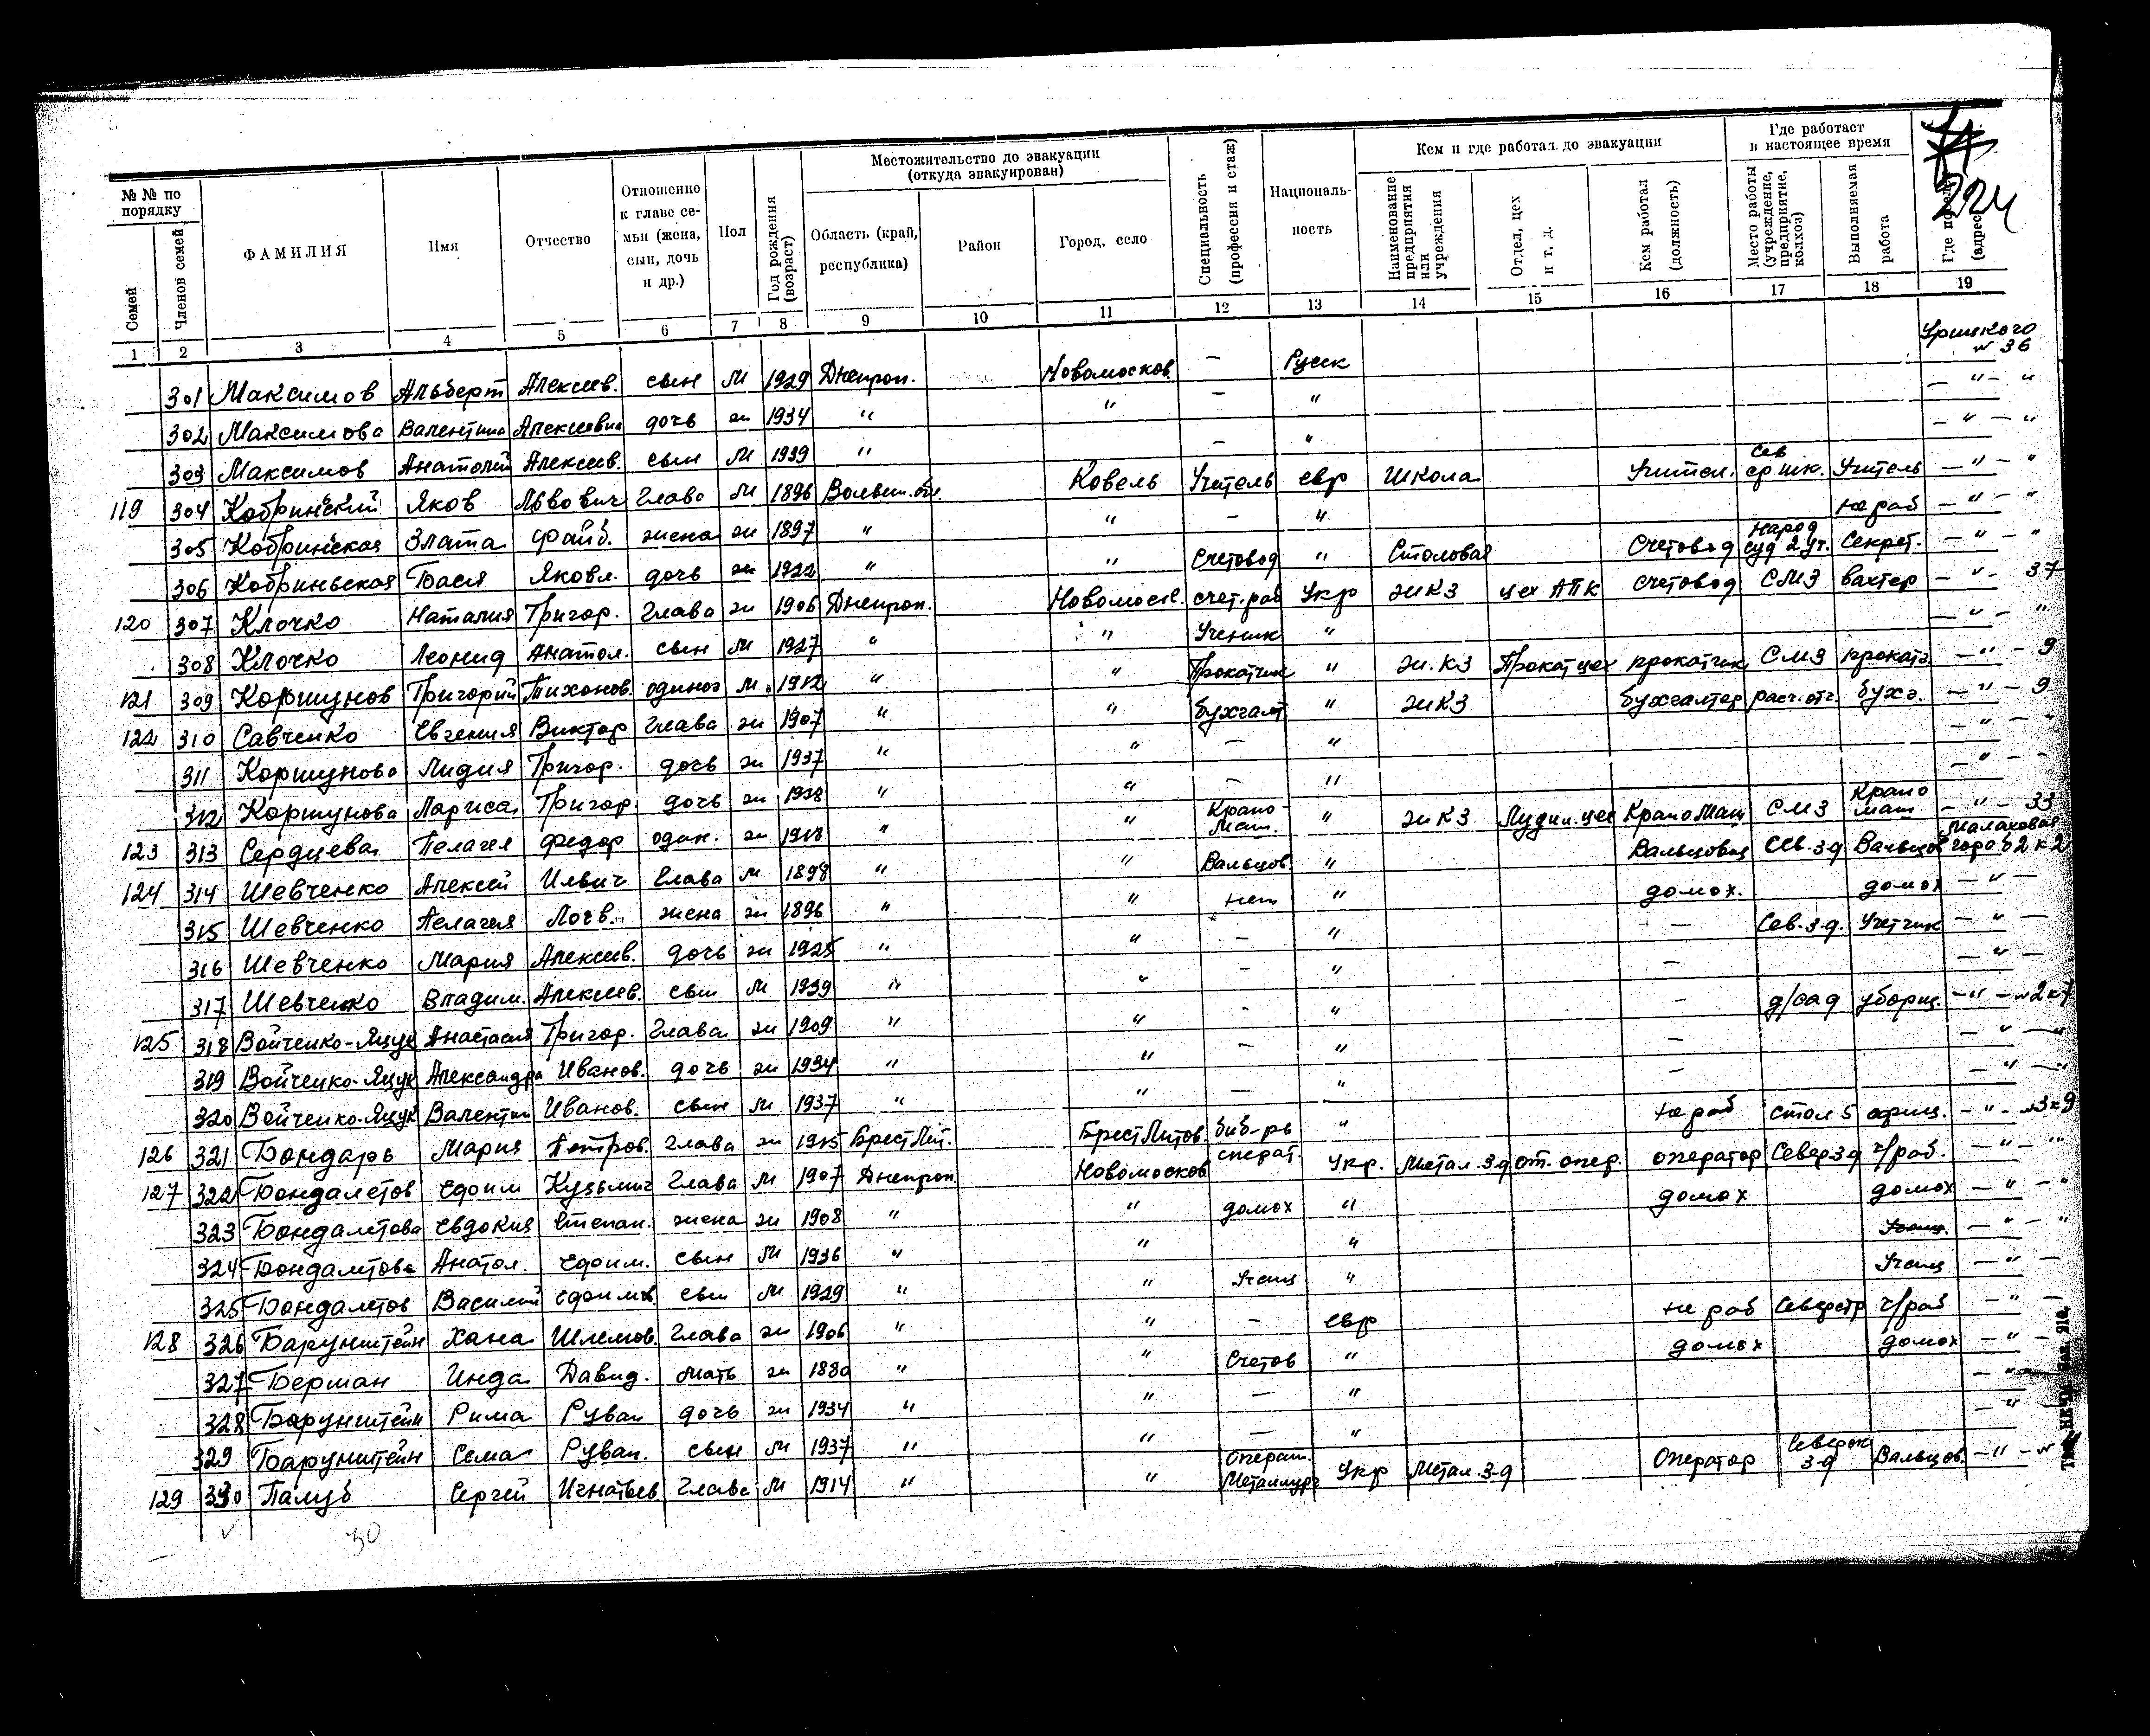 224
№ № по порядку
Семей
Членов семей
ФАМИЛИЯ
Имя
Отчество
Отношение к главе семьи (жена, сын, дочь и др.)
Пол
Год рождения (возраст)
Местожительство до эвакуации (откуда эвакуирован)
Область (край, республика)
Район
Город, село
Специальность (профессия и стаж)
Националь-
ность
Кем и где работал до эвакуации
Наименование предприятия или учреждения
Отдел, цех и т. д.
Кем работал (должность)
Где работает в настоящее время
Место работы (учреждение, предприятие, колхоз)
Выполняемая работа
(адрес
1 2 3 4 5 6 7 8 9 10 11 12 13 14 15 16 17 18 19
301 Максимов Альберт Алексеев. сын М 1929 Днепроп. Новомосков. — Русск Урицкого № 36
302 Максимова Валентина Алексеевна дочь ж 1934 " " — " — " — "
303 Максимов Анатолий Алексеев. сын М 1939 " — " — " — "
119 304 Кобринский Яков Львович Глава М 1896 Волын. обл. Ковель Учитель евр Школа Учител. Сев ср шк. Учитель — " — "
305 Кобринская Злата Файб. жена ж 1897 " " — " не раб — " — "
306 Кобриньская Бася Яковл. дочь ж 1922 " " Счетовод " Столовая Счетовод Народ суд 2 уч. Секрет. — " — "
120 307 Клочко Наталия Григор. Глава ж 1906 Днепроп. Новомоск. счет. раб Укр ЖКЗ цех АПК счетовод СМЗ вахтер — " — 37
308 Клочко Леонид Анатол. сын М 1927 " " Ученик " — " — "
121 309 Коршунов Григорий Тихонов. одинок М. 1912 " " Прокатчик " Ж.КЗ Прокат цех прокатчик СМЗ прокатч. — " — 9
122 310 Савченко Евгения Виктор Глава ж 1907 " " бухгалт " ЖКЗ бухгалтер расч. отч. бухг. — " — 9
311 Коршунова Лидия Григор. дочь ж 1937 " " — " — " — "
312 Коршунова Лариса Григор. дочь ж 1938 " " — " — " —
123 313 Сердцева Пелагея Федор один. ж 1918 " " Крано Маш. " ЖКЗ Лудил. цех КраноМаш СМЗ Крано маш — " — 33
124 314 Шевченко Алексей Ильич Глава М 1898 " " Вальцов. " Вальцовщ Сев. з-д Вальцов Малаховая гора б 2 к 2
315 Шевченко Пелагея Логв. жена ж 1896 " " нет " домох. домох — " —
316 Шевченко Мария Алексеев. дочь ж 1925 " " — " — Сев. з-д. Учетчик — " —
317 Шевченко Владим. Алексеев. сын М 1939 " " — " — — " —
125 318 Войченко-Яцук Анастасия Григор. Глава ж 1909 " " - " — д/сад уборщ. — " — № 2 к 7
319 Войченко-Яцук Александра Иванов. дочь ж 1934 " " — " — — " — "
320 Войченко-Яцук Валентин Иванов. сын М 1937 " " — " — — " — "
126 321 Бондарь Мария Петров. Глава ж 1915 Брест Лит. Брест Литов. биб-рь " не раб стол 5 офиц. — " — № 3 к 9
127 322 Бондалетов Ефим Кузьмич Глава М 1907 Днепроп. Новомосков операт. Укр. Метал. з-д от. опер. оператор Север з-д ч/раб. — " — "
323 Бондалетова Евдокия Степан. жена ж 1908 " " домох " домох домох — " — "
324 Бондалетова Анатол. Ефим. сын М 1936 " " " — " — "
325 Бондалетов Василий Ефимов. сын М 1929 " " Учащ " Учащ — " —
128 326 Барунштейн Хана Шлемов. Глава ж 1906 " " — евр не раб Северстр ч/раб — " —
327 Берман Инда Давид. мать ж 1880 " " Счетов " домох домох — " —
328 Барунштейн Рима Руван дочь ж 1934 " " — " — " —
329 Барунштейн Сема Руван. сын М 1937 " " — " — " —
129 330 Палуб Сергей Игнатьев Глава М 1914 " " Операт. Металлург Укр Метал. з-д Оператор Северск з-д Вальцов. — " — №
30